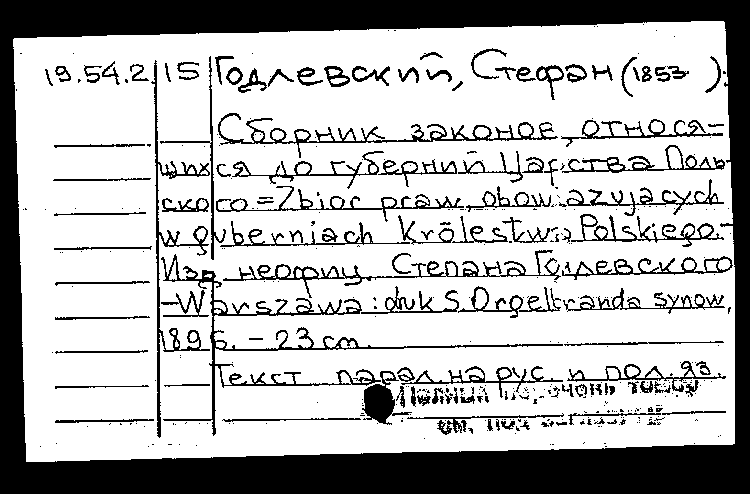 19.54.2 15 Годлевский, Стефан (1853 ).
Сборник законов, относя-
щихся до губерний Царства Поль-
ского = Zbior praw, obowiazujacych
w guberniach Królestwa Polskiego.-
Изд. неофиц. Степана Годлевского
-Warszawa: druk S. Orgelbranda synow,
1896. - 23 cm.
Текст парал. на рус. и пол. яз.
Полный
см. под